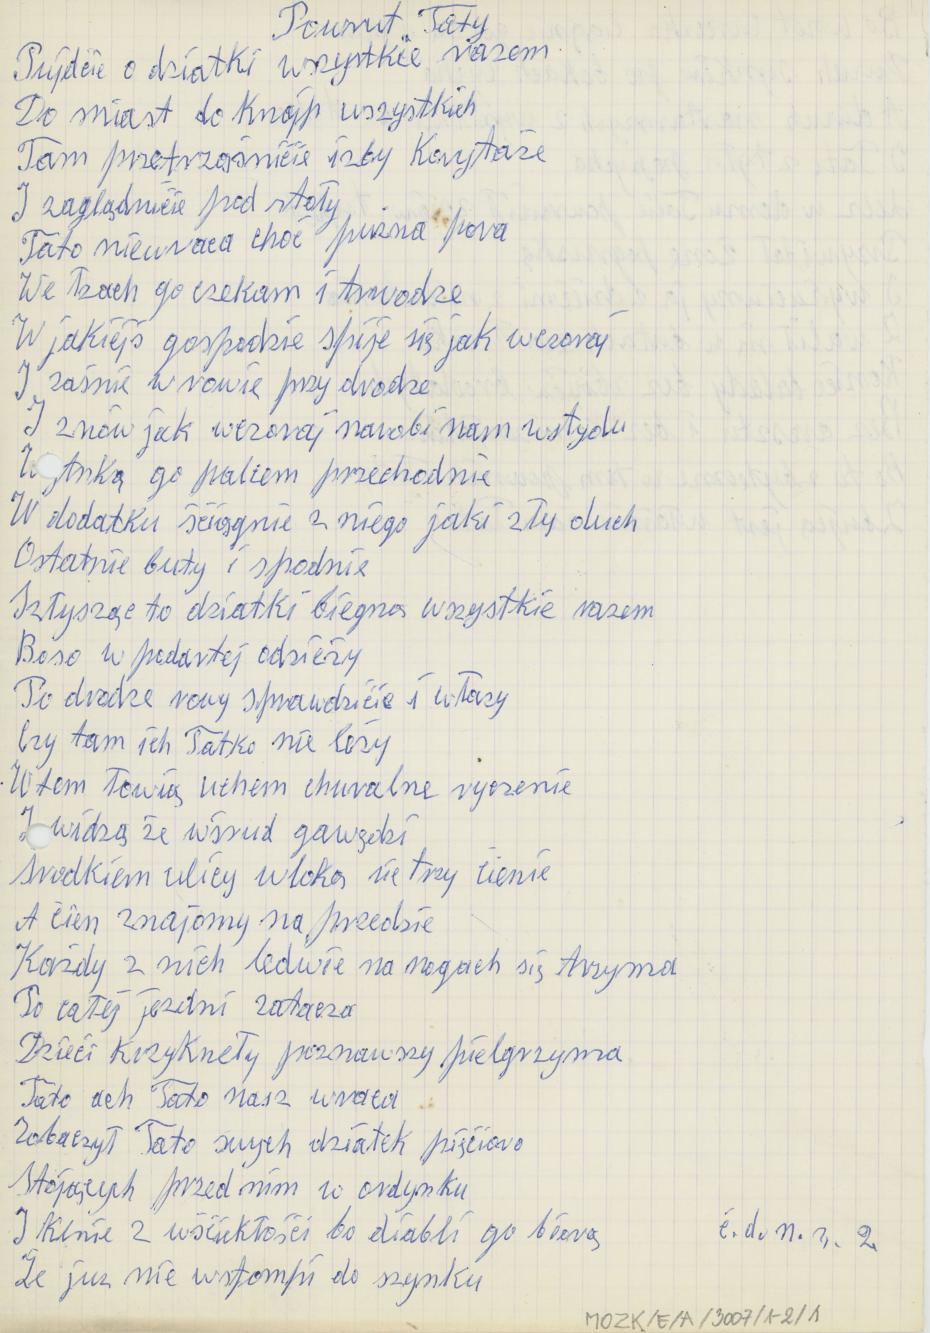 Powrut "Taty
Pujdcie o dziatki wszystkie razem
Do miast do Knajp wszystkich
Tam przetrząśnićie izby Korytaże
I zaglądniĉie pod stoły
Tato niewraca choć puzna pora
We łzach go czekam i trwodze
W jakiejś gospodzie spije się jak wczoraj
I zaśnie w rowie przy drodze
I znów jak wczoraj narobi nam wstydu
Wytnką go palcem przechodnie
W dodatku śćiągnie z niego jaki zły duch
Ostatnie buty i spodnie
Szłysząc to dziatki biegną wszystkie razem
Boso w podartej odzieży
Po drodze rowy sprawdzićie i włazy
Czy tam ich Tatko nie leży
Wtem łowią uchem churalne ryczenie
I widzą że wśrud gawędzi
Srodkiem ulicy wloką sie trzy cienie
A ćien znajomy na przedzie
Każdy z nich ledwie na nogach się trzyma
Po całej jezdni zatacza
Dzieći krzyknęły poznawszy pielgrzyma
Tato ach Tato nasz wraca
Zobaczył Tato swych dziatek pięćioro
Stójących przed nim w ordynku
I klnie z wśćiekłośći bo diabli go biorą ć. d. n. s. 2.
Że juz nie wstompi do szynku
MOZK/E/A/3007/1-2/1